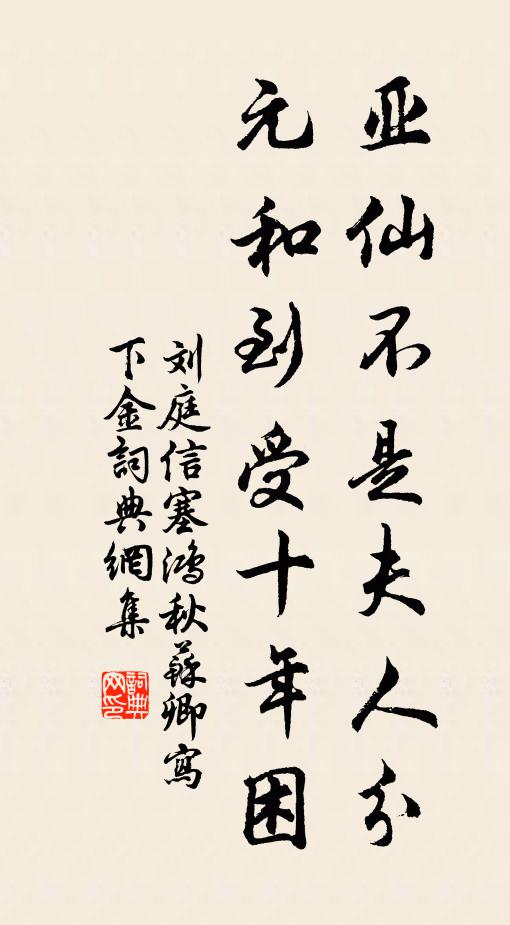 亚仙不是夫人分
元和到受十年困
刘庭信塞鸿秋蘇卿寫
下金詞典網集
詞典
网印